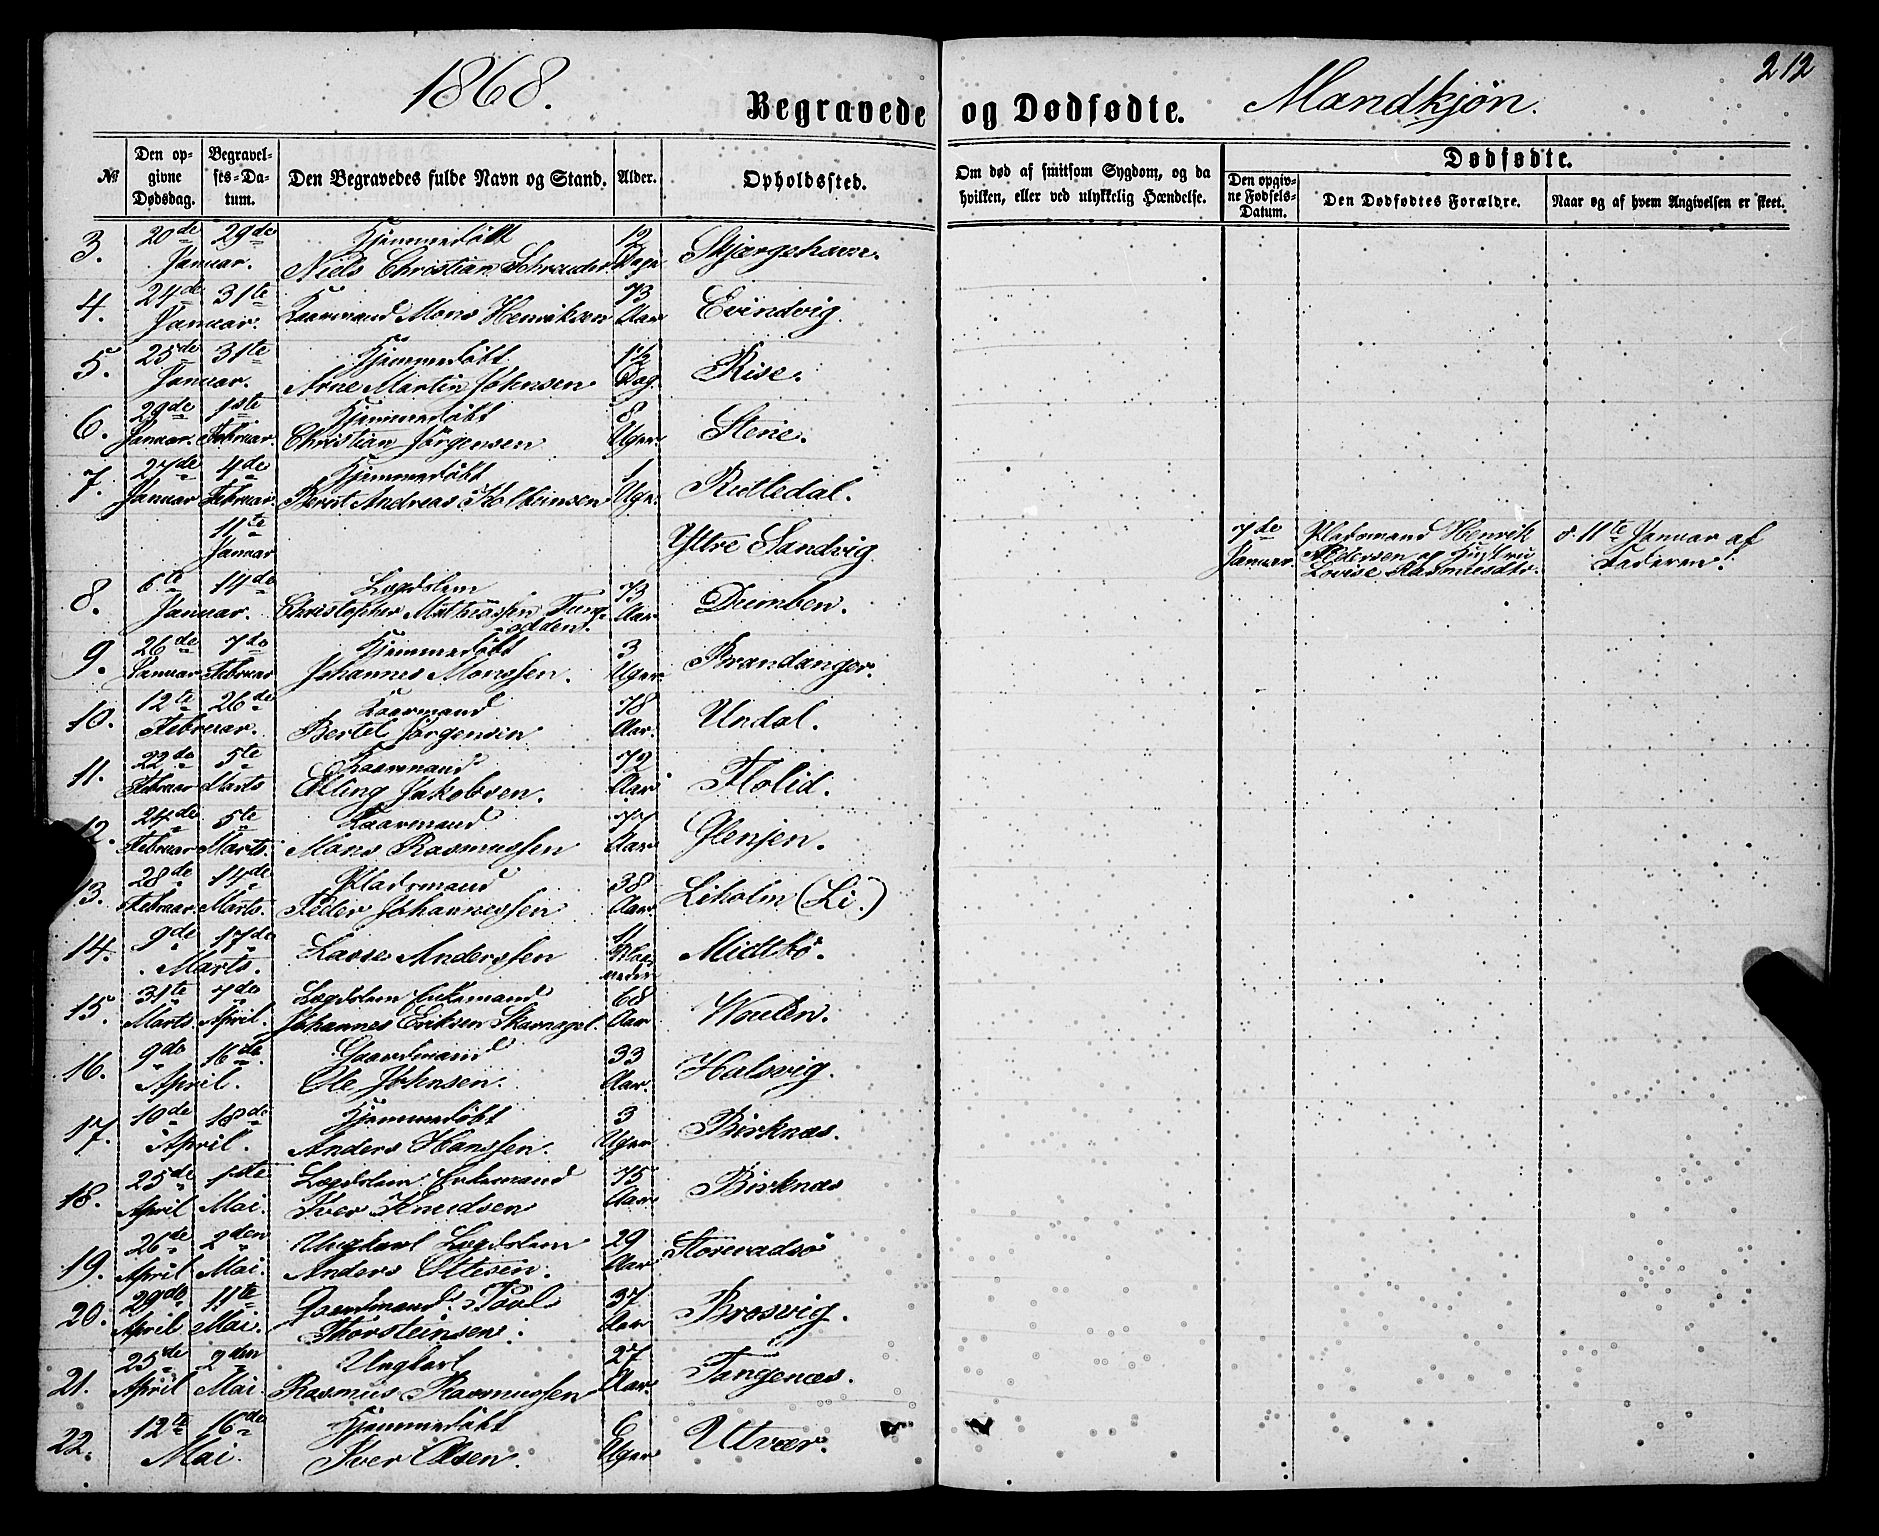 1868.
Begravede og Dødfødte. Mandkjøn.
212
No
Den opgivne Dødsdag.
Begravelses-Datum.
Den Begravedes fulde Navn og Stand.
Alder.
Opholdssted.
Om død af smitsom Sygdom, og da hvilken, eller ved ulykkelig Hændelse.
Dødfødte.
Den opgivne Fødsels-Datum.
Den Dødfødtes Forældre.
Naar og af hvem Angivelsen er skeet.
3. 20de 29de Januar. Hjemmedøbt Niels Christian Schrøuder 12 Dage Skjærgehavn.
4. 24de 31te Januar. Kaarmand Mons Henriksen 73 Aar Evindvig.
5. 25de 31te Januar. Hjemmedøbt Arne Martin Johnsen 1½ Dag. Rise.
6. 29de Januar. 1ste Februar. Hjemmedøbt Christian Jørgensen 8 Uger. Stene.
7. 27de Januar 4de Februar. Hjemmedøbt Bernt Andreas Kolbeinsen 1 Uge. Rutledal.
11te Januar Yttre Sandvig. 7de Januar. Pladsmand Henrik Pedersen og Hustru Lovise Rasmusdtr. d. 11te Januar af Faderen.
8. 6te 14de Januar. Lægdslem Christopher Mathiassen Tungeodden. 73 Aar. Dumben.
9. 26de Januar 7de Februar Hjemmedøbt Johannes Monssen. 3 Uger. Brandanger.
10. 12te 26de Februar. Kaarmand Bertel Jørgensen 78 Aar. Undal.
11. 22de Februar 5te Marts Kaarmand Elling Jakobsen. 72 Aar Flolid.
12. 24de Februar 5te Marts. Kaarmand Mons Rasmussen 77 Aar. Glenjen.
13. 28de Februar. 14de Marts. Pladsmand Peder Johannessen 38 Aar. Liholm (Li.)
14. 9de 17de Marts. Lasse Anderssen 11 Maaneder Midtbø.
15. 31te Marts 7de April. Lægdslem Enkemand Johannes Eriksen Skarnagel. 68 Aar Wouten.
16. 9de 16de April. Gaardmand Ole Johnsen. 33 Aar. Halsvig.
17. 10de 18de April. Hjemmedøbt Anders Hanssen. 3 Uger Birknæs.
18. 25de April 1ste Mai. Lægdslem Enkemand Iver Knudsen 75 Aar. Birknæs
19. 26de April 2den Mai. Ungkarl Lægdslem Anders Ottesen. 29 Aar
20. 29de April 11te Mai. Gaardmand Povl Thorsteinsen. 37 Aar Brosvig.
21. 25de April 2den Mai. Ungkarl Rasmus Rasmussen 27 Aar. Tangenæs.
22. 12te 16de Mai. Hjemmedøbt Iver Olsen. 6 Uger Utvær.